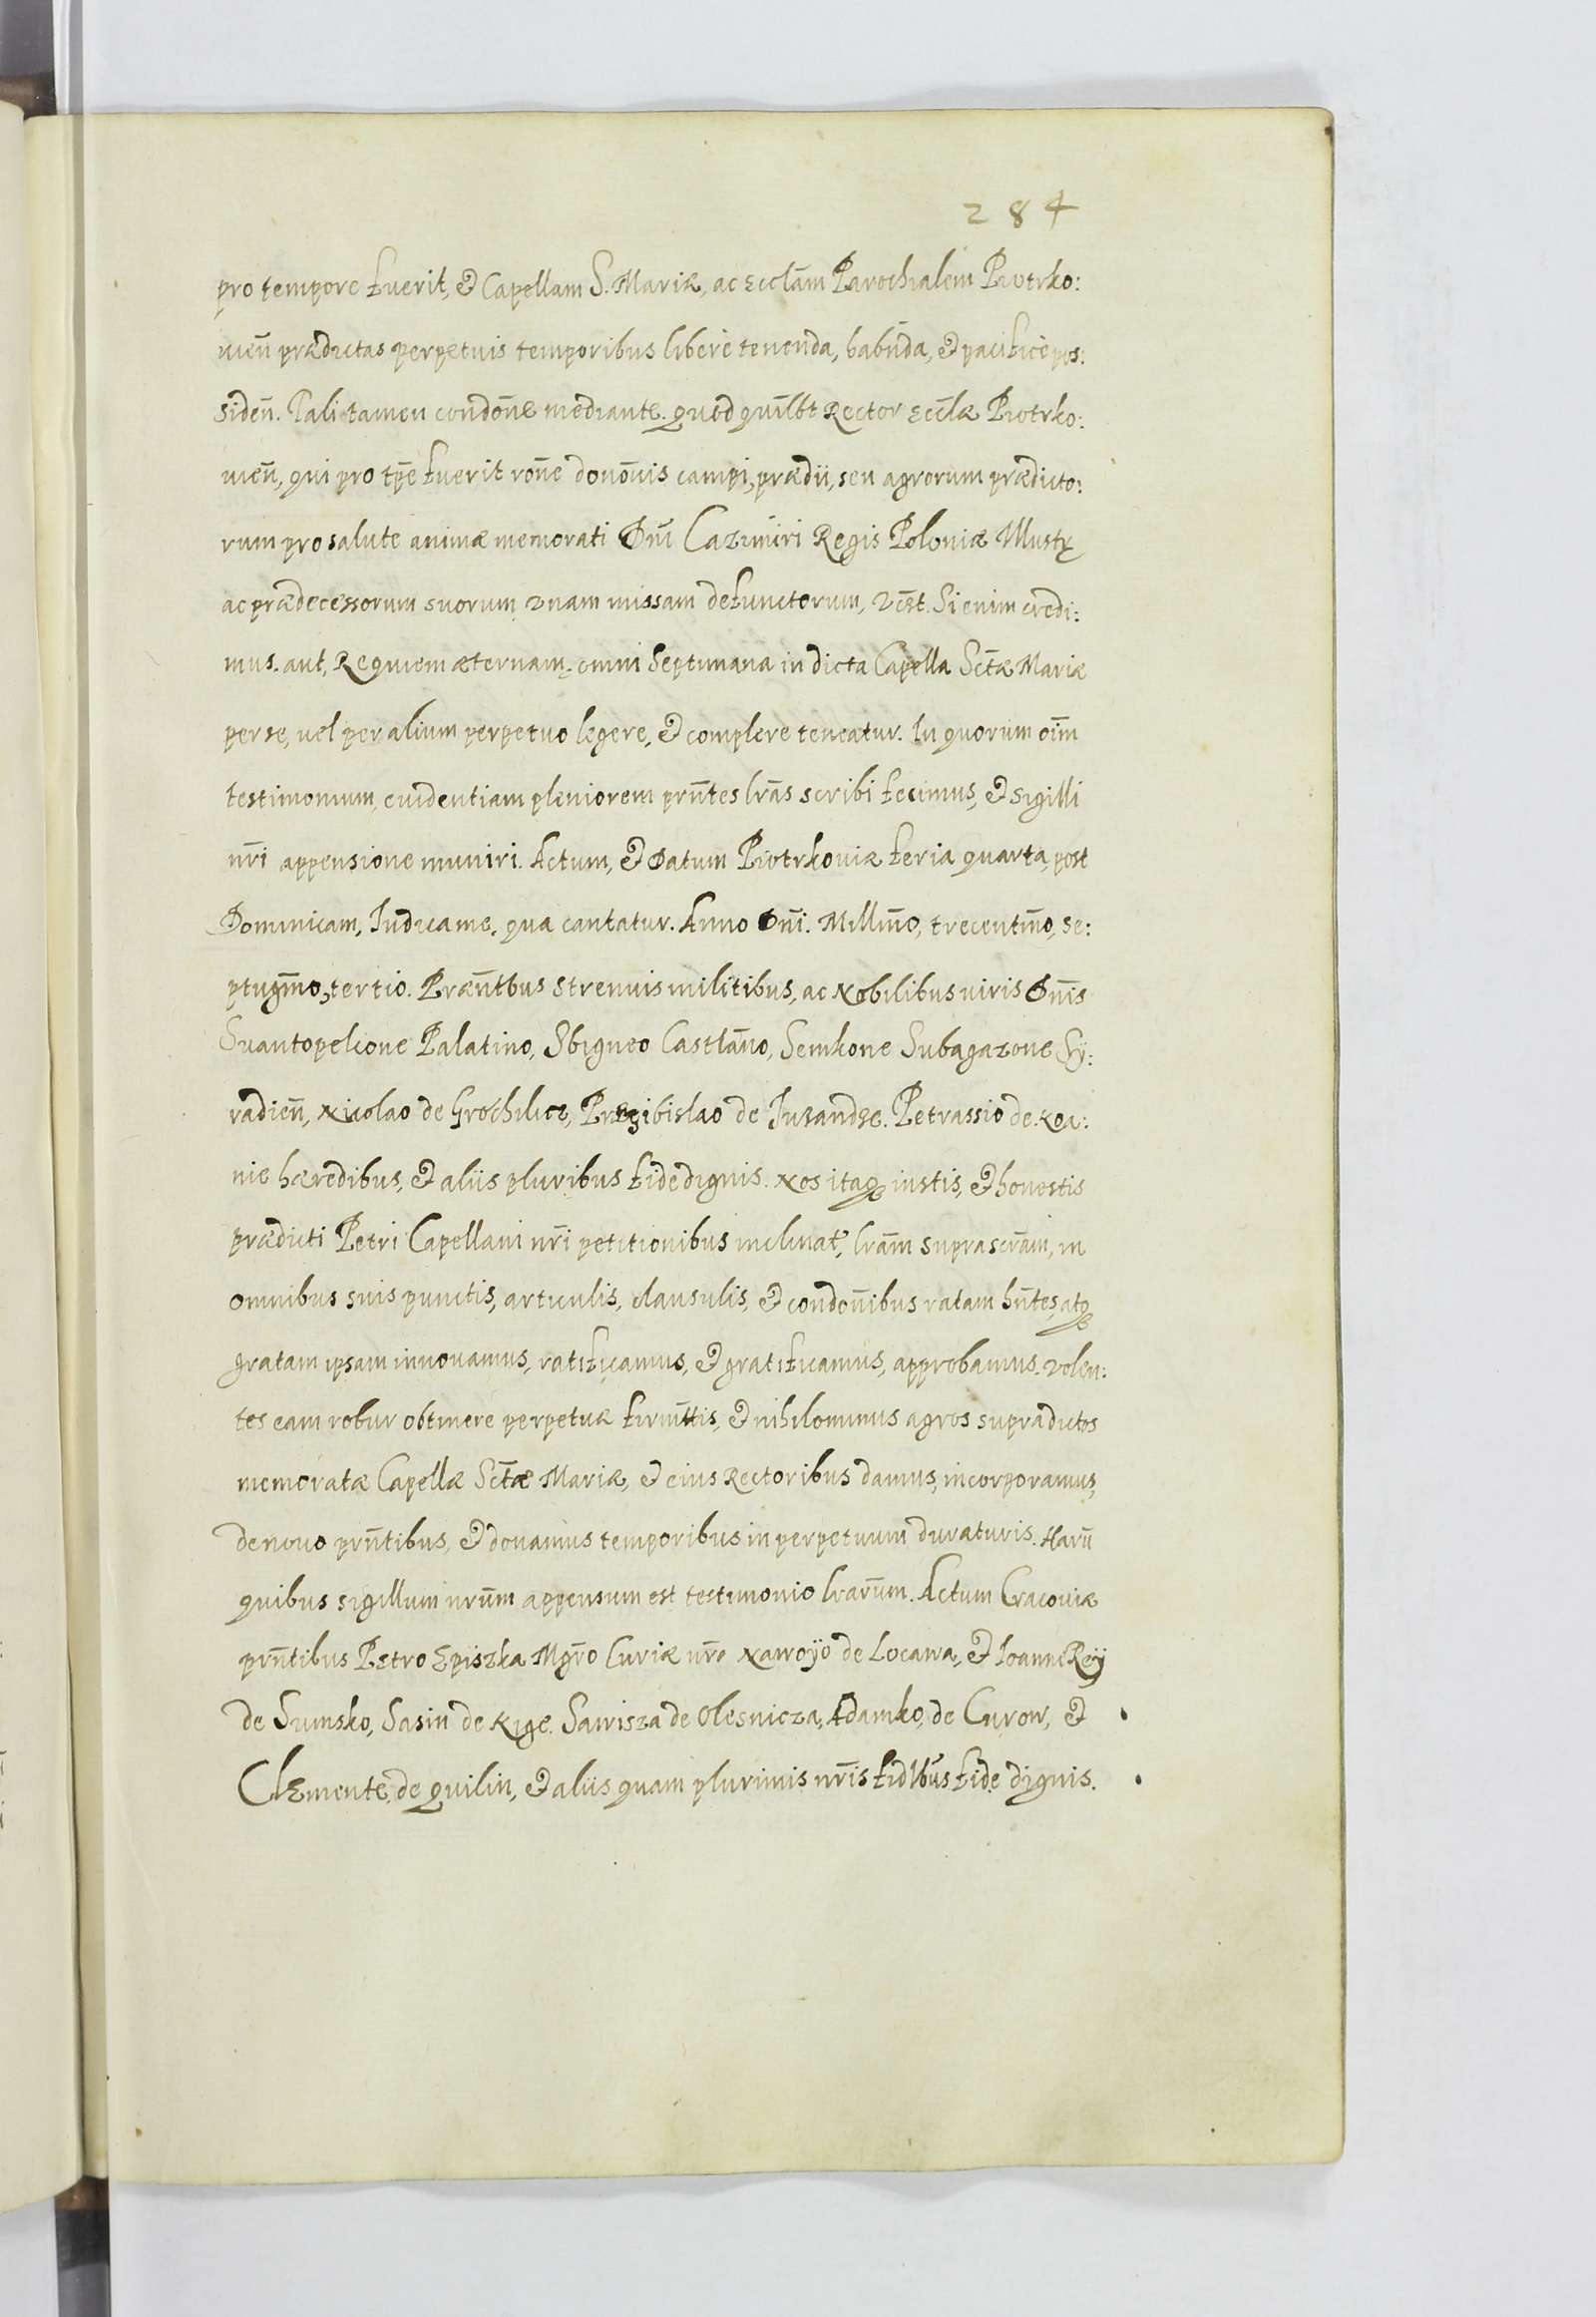 284
pro tempore fuerit, & Capellam S. Mariæ, ac Ecclãm Parochialem Piotrko:
vien̄ prædictas perpetuis temporibus liberè tenenda, habn̄da, & pacificè pos:
siden̄. Tali tamen condōne mediante. quod quil̄bt Rector Eccl̄æ Piotrko:
vien̄, qui pro tp̄e fuerit rōne donōnis campi, prædii, seu agrorum prædicto:
rum pro salute animæ memorati Dn̄i Cazimiri Regis Poloniæ Illustr̨
ac prædecessorum suorum unam missam defunctorum, vc̄st. Si enim credi:
mus. aut, Requiem æternam. omni Septimana in dicta Capella Sc̄tæ Mariæ
per se, vel per alium perpetuo legere, & complere teneatur. In quorum oīm
testimonium, evidentiam pleniorem prn̄tes lrās scribi fecimus, & sigilli
nr̄i appensione muniri. Actum, & Datum Piotrkoviæ feria quarta, post
Dominicam, Iudica me, qua cantatur. Anno Dn̄i. Millm̄o, trecentm̄o, se:
ptugm̄o, tertio. Præn̄tbus strenuis militibus, ac Nobilibus viris Dn̄is
Suantopelcone Palatino, Sbigneo Castlāno, Semkone Subagazone Sÿ:
radien̄, Nicolao de Grochilice, Przibislao de Iusandze. Petrassio de Koa:
nie hæredibus, & aliis pluribus fide dignis. Nos itaq̨ iustis, & honestis
prædicti Petri Capellani nr̄i petitionibus inclinat', lrām suprascrām, in
omnibus suis punctis, articulis, clausulis, & condōnibus ratam hn̄tes, atq̨
gratam ipsam innovamus, ratificamus, & gratificamus, approbamus. volen:
tes eam robur obtinere perpetuæ firmt̄tis, & nihilominus agros supradictos
memoratæ Capellæ Sc̄tæ Mariæ, & eius Rectoribus damus, incorporamus,
de novo prn̄tibus, & donamus temporibus in perpetuum duraturis. Harū
quibus sigillum nrūm appensum est testimonio lrārum. Actum Cracoviæ
prn̄tibus Petro Episzka Mgr̄o Curiæ nr̄e Nawoÿo de Locawa, & Ioanne Reÿ
de Sumsko, Sasin de Rige. Sawisza de Olesnicza, Adamko, de Curow, &
Clemente, de Quilin, & aliis quam plurimis nr̄is fidlb̄us fide dignis.